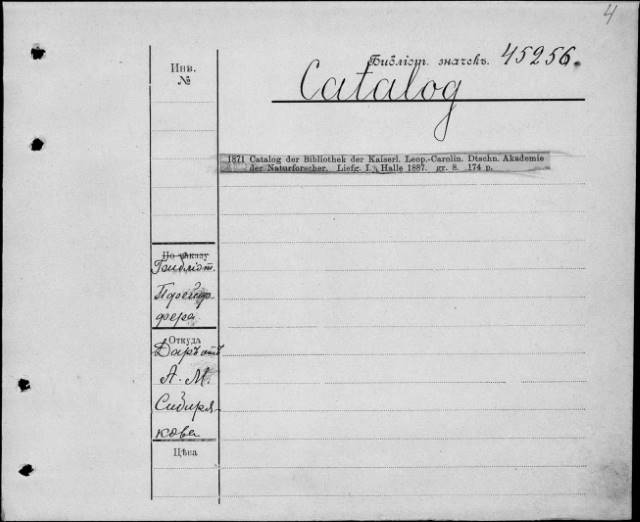 4
Библіот. значекъ. 45256.
Инв.
№
Catalog
1871 Catalog der Bibliothek der Kaiserl. Leop.-Carolin. Dtschn. Akademie
der Naturforscher. Liefg. I. Halle 1887. gr. 8. 174 p.
По заказу
Библіот.
Пфейф-
фера.
Откуда
Даръ отъ
А. М.
Сибиря-
кова
Цѣна